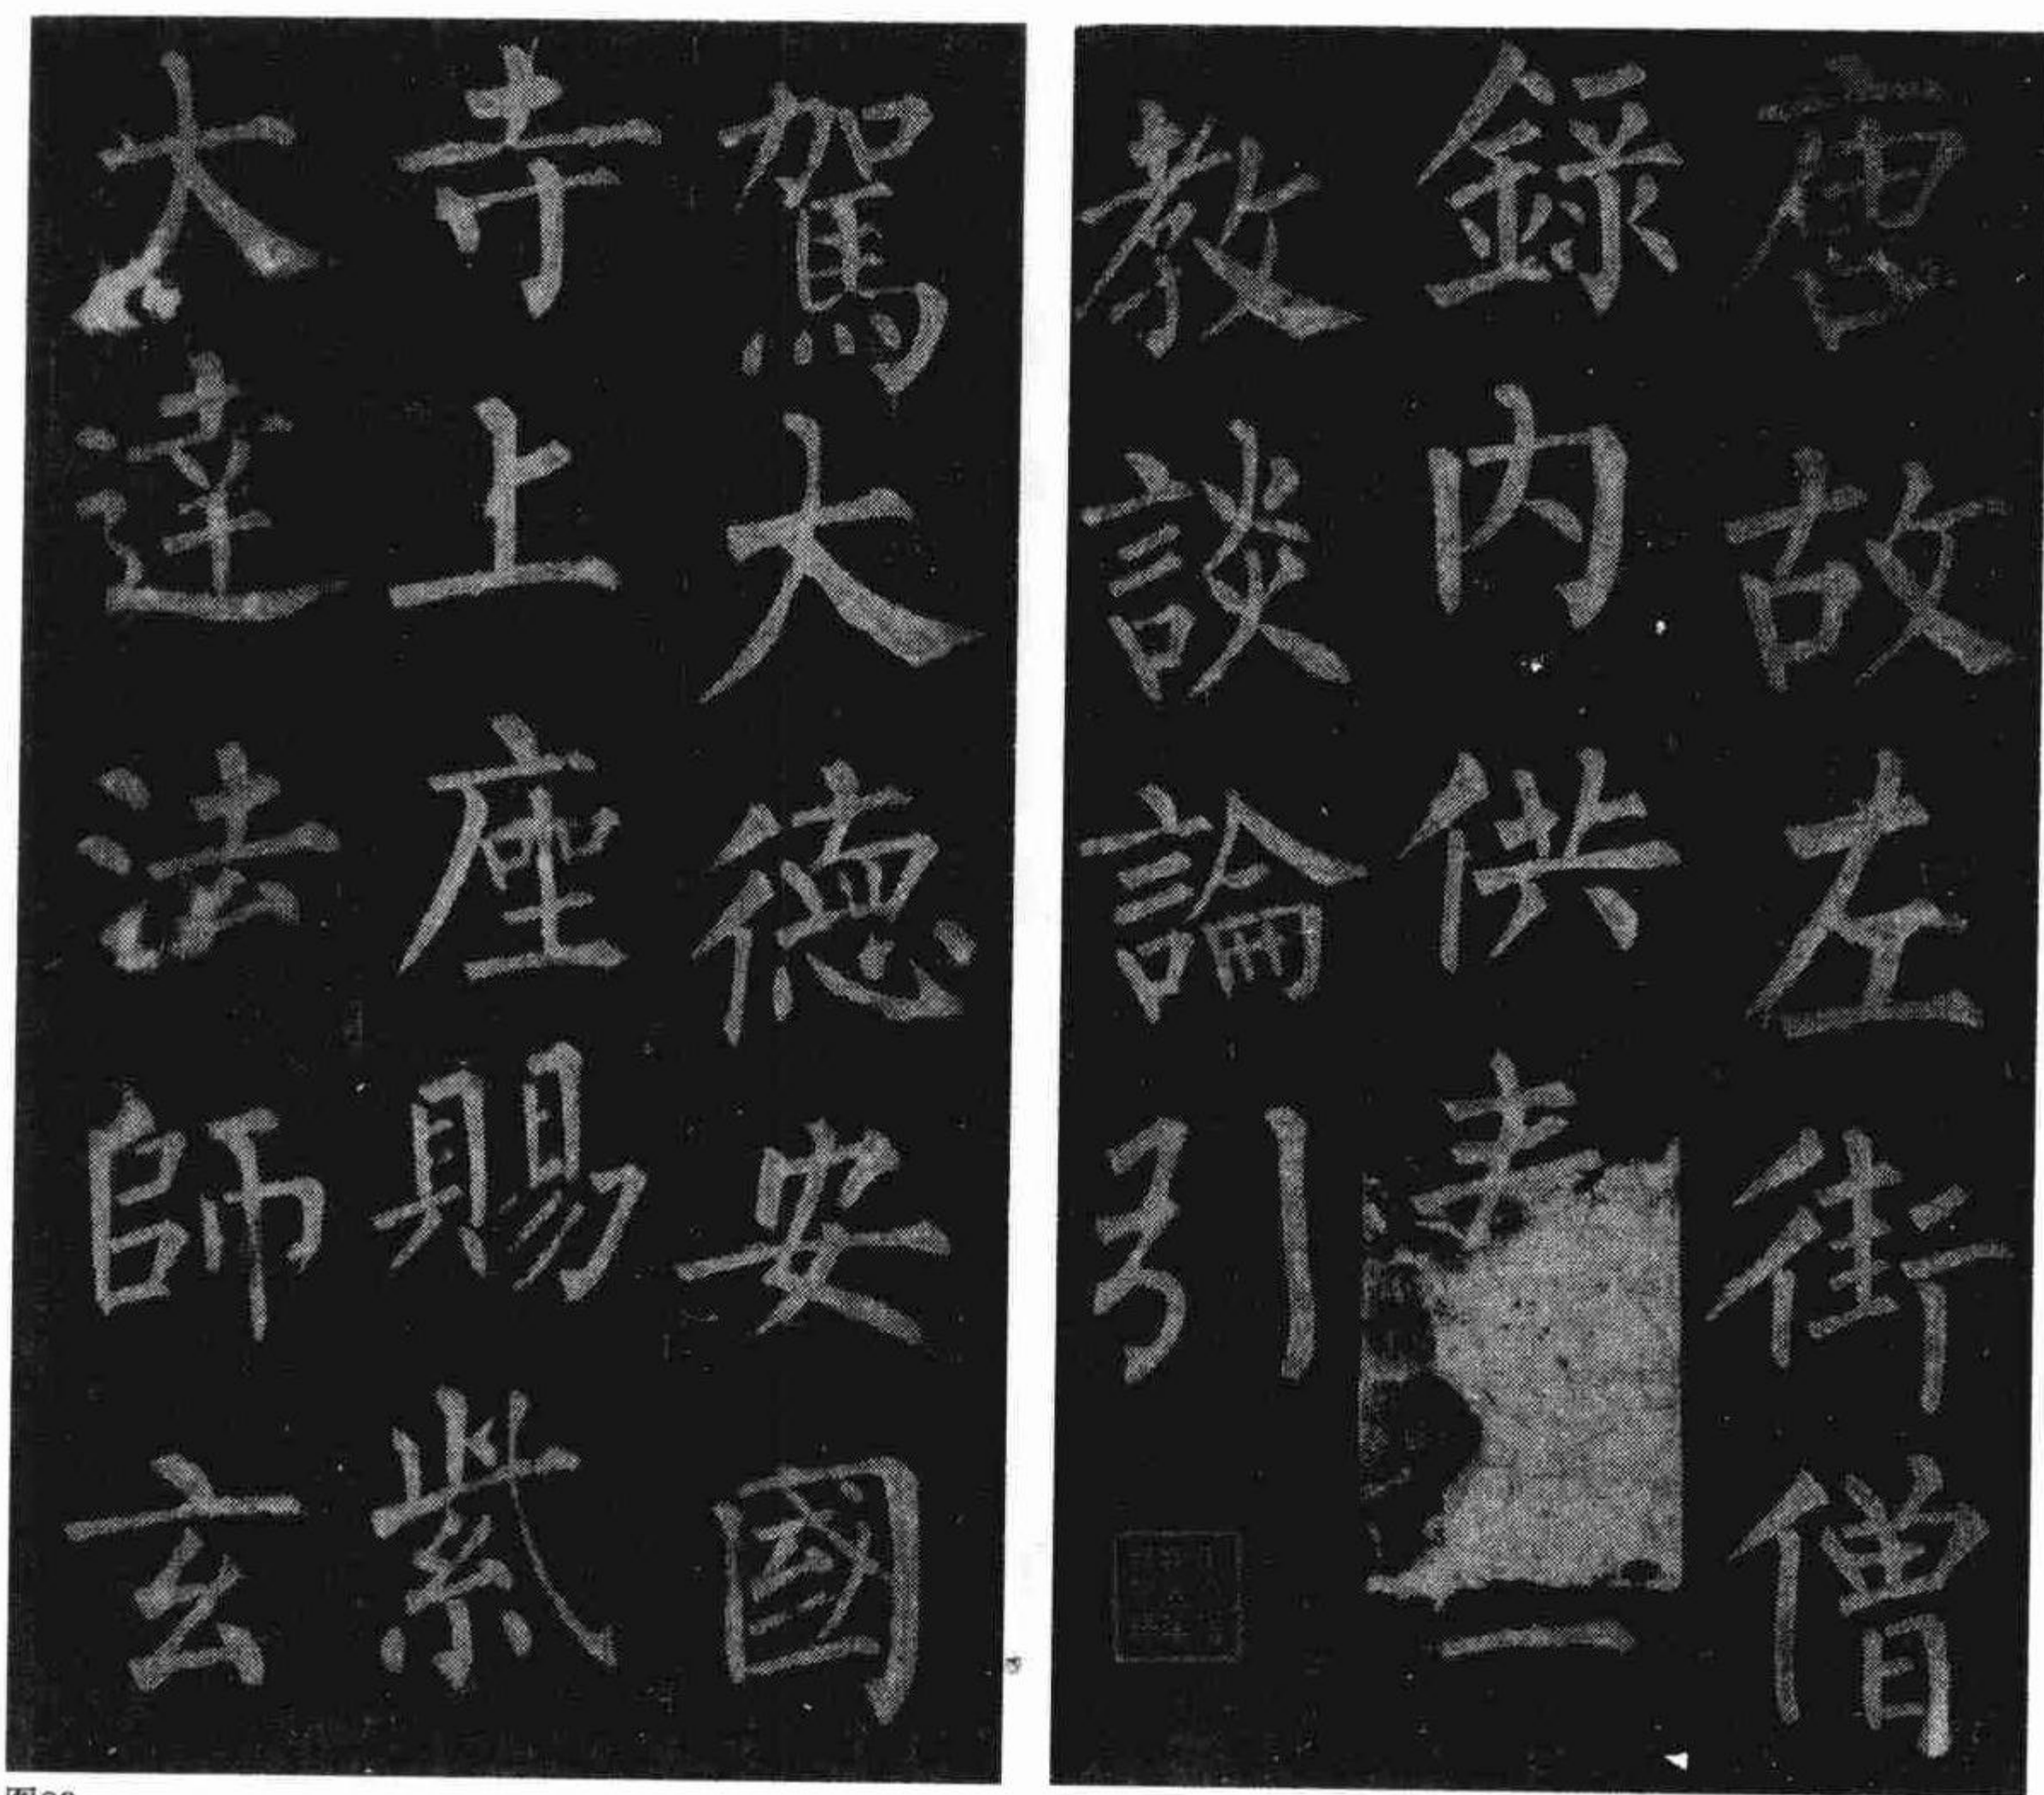 唐故左街僧
録内供奉三
教談論引
駕大德安國
寺上座賜紫
大達法師玄